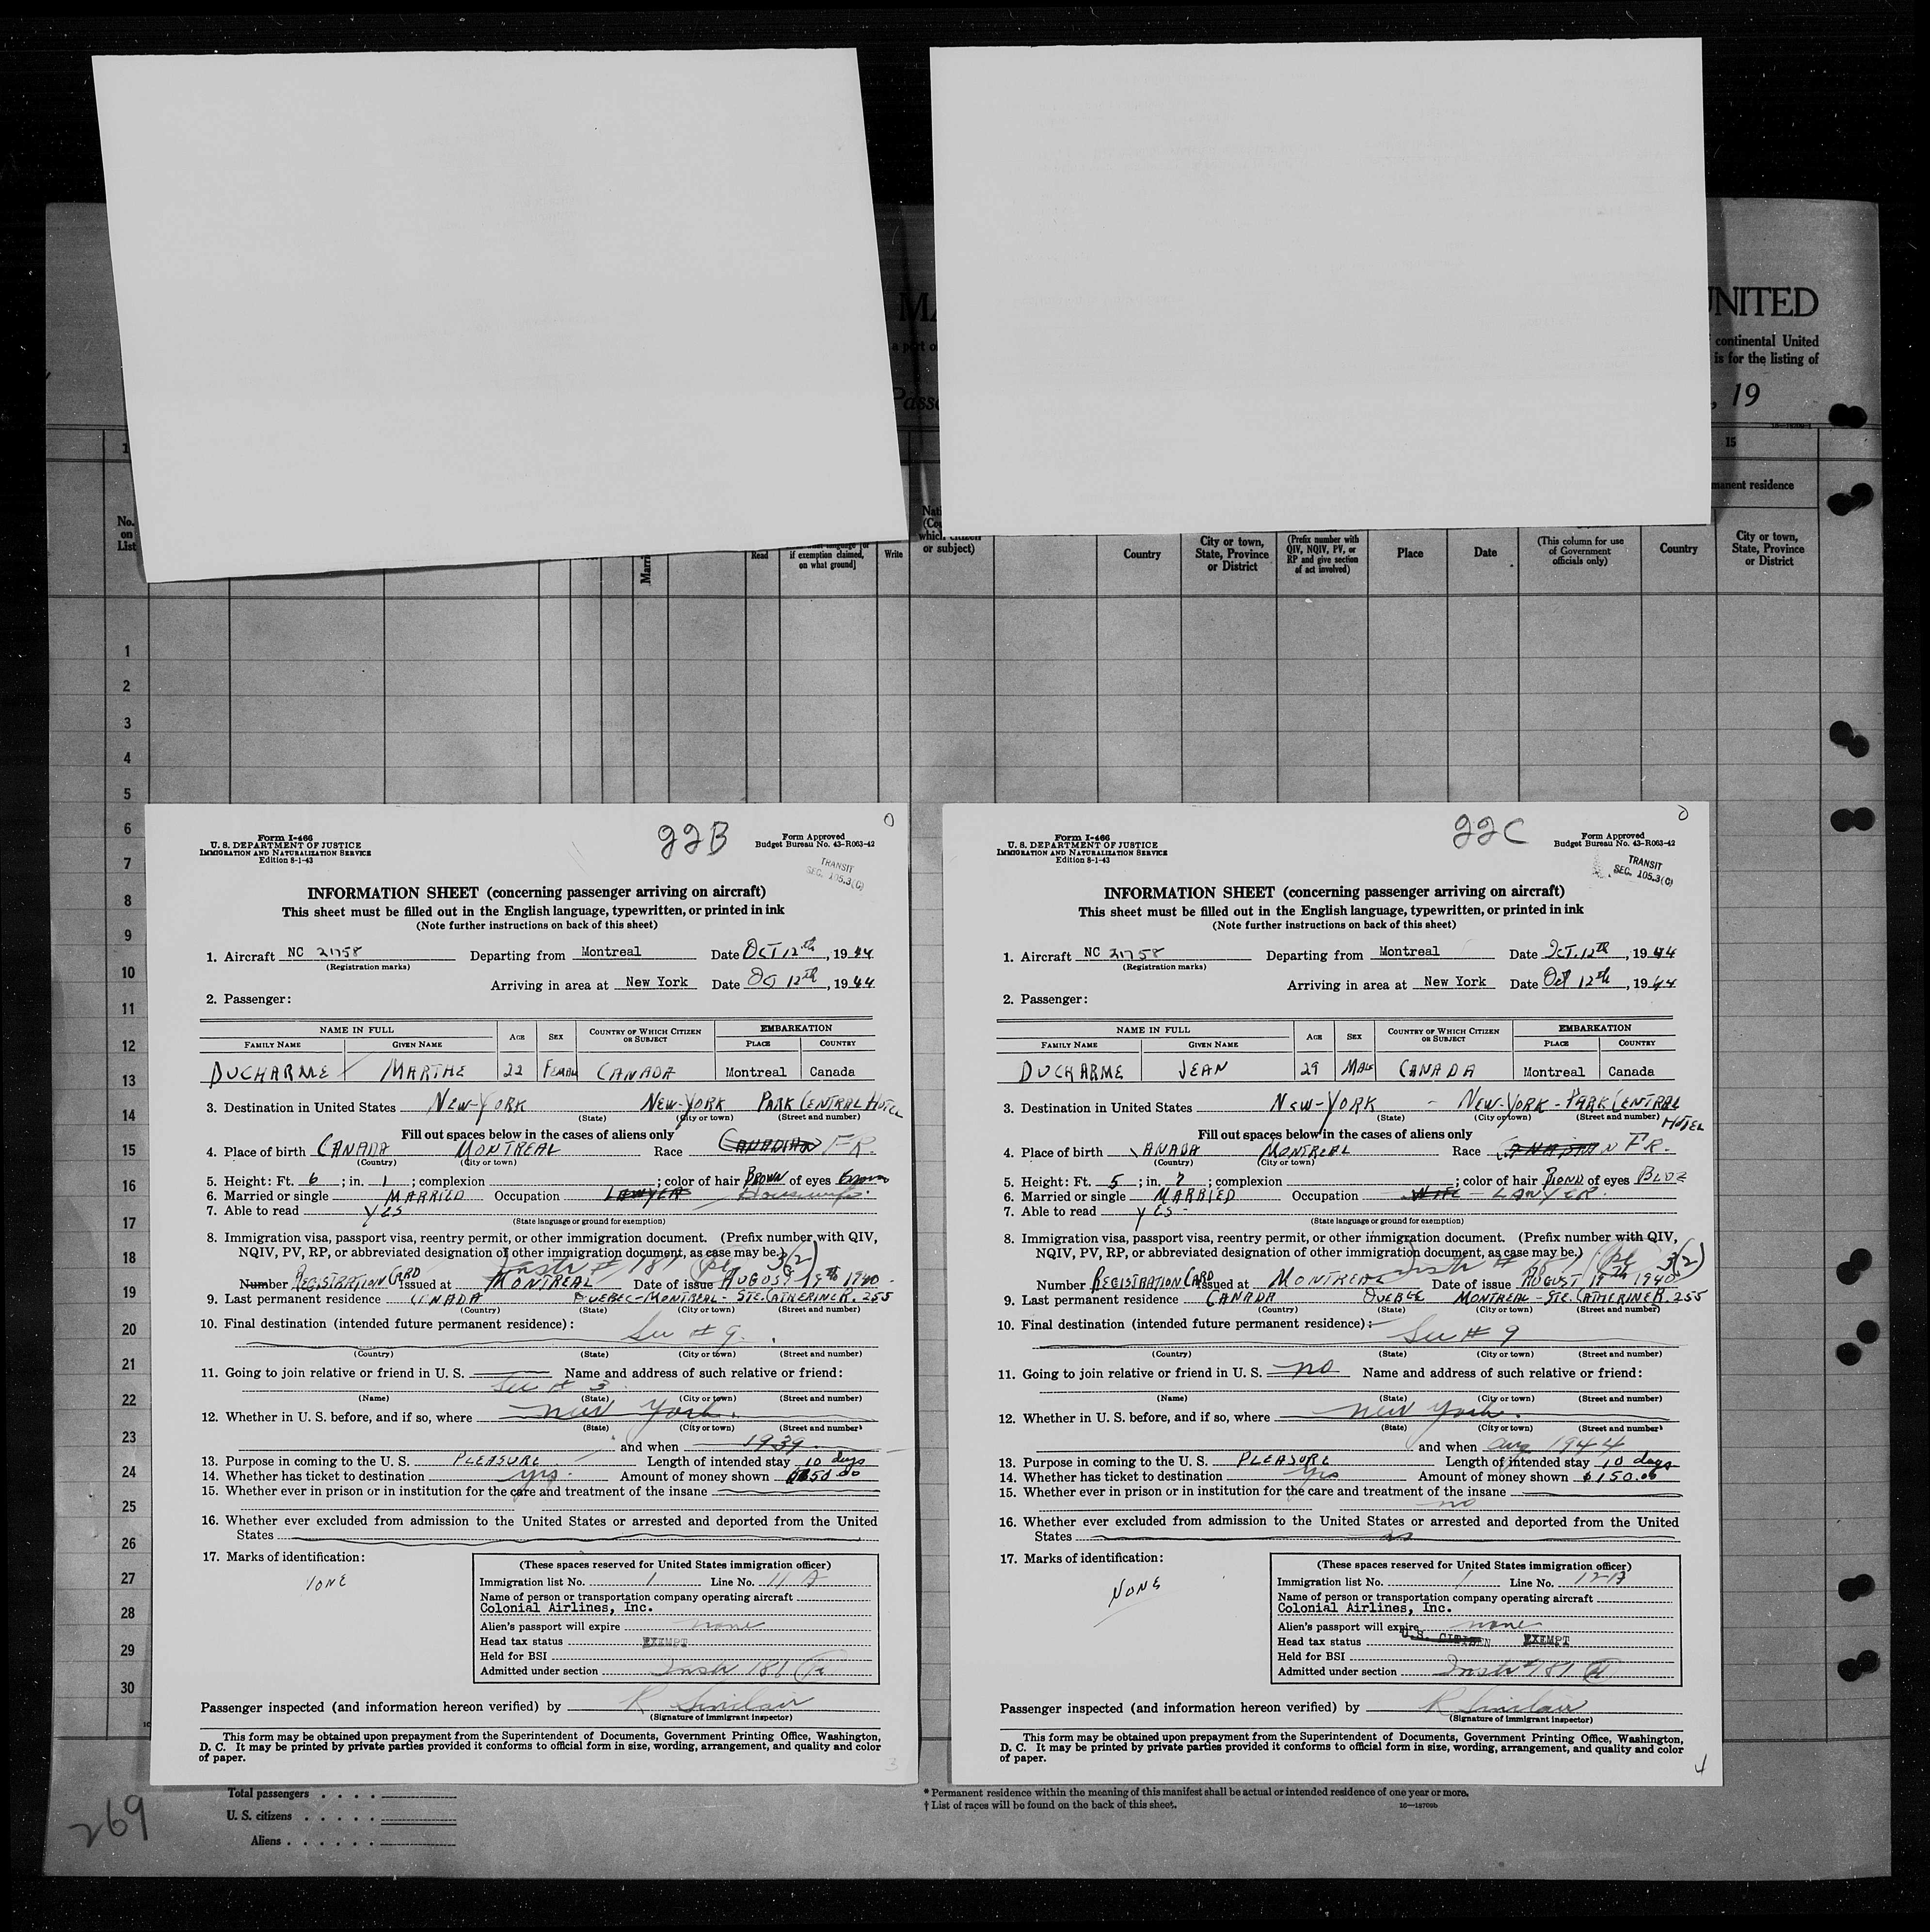 MA
UNITED
a part o
continental United
is for the listing of
Passe
, 19
15
manent residence
No.
on
List
Read
if exemption claimed,
on what ground]
Write
which citizen
or subject)
Country
City or town,
State, Province
or District
(Prefix number with
QIV, NQIV, PV, or
RP and give section
of act involved)
Place
Date
(This column for use
of Government
officials only)
Country
City or town,
State, Province
or District
1
2
3
4
5
6
7
8
9
10
11
12
13
14
15
16
17
18
19
20
21
22
23
24
25
26
27
28
29
30
22B
Form I-466
U. S. DEPARTMENT OF JUSTICE
IMMIGRATION AND NATURALIZATION SERVICE
Edition 8-1-43
Form Approved
Budget Bureau No. 43-R063-42
TRANSIT
SEC. 105.3(C)
INFORMATION SHEET (concerning passenger arriving on aircraft)
This sheet must be filled out in the English language, typewritten, or printed in ink
(Note further instructions on back of this sheet)
1. Aircraft NC 21758 Departing from Montreal Date OCT 12th, 1944
(Registration marks)
Arriving in area at New York Date Oc 12th, 1944
2. Passenger:
NAME IN FULL AGE SEX COUNTRY OF WHICH CITIZEN OR SUBJECT EMBARKATION
FAMILY NAME GIVEN NAME PLACE COUNTRY
DUCHARME MARTHE 22 FEMALE CANADA Montreal Canada
3. Destination in United States NEW-YORK NEW-YORK PARK CENTRAL HOTEL
(State) (City or town) (Street and number)
Fill out spaces below in the cases of aliens only
4. Place of birth CANADA MONTREAL Race CANADIAN FR.
(Country) (City or town)
5. Height: Ft. 6; in. 1; complexion ; color of hair BROWN of eyes Brown
6. Married or single MARRIED Occupation LAWYER Housewife.
7. Able to read YES
(State language or ground for exemption)
8. Immigration visa, passport visa, reentry permit, or other immigration document. (Prefix number with QIV,
NQIV, PV, RP, or abbreviated designation of other immigration document, as case may be.) Instr # 181 3(2)
Number REGISTRATION CARD Issued at MONTREAL Date of issue AUGUST 19th 1940
9. Last permanent residence CANADA QUEBEC-MONTREAL - STE. CATHERINE R. 255
(Country) (State) (City or town) (Street and number)
10. Final destination (intended future permanent residence): See # 9.
(Country) (State) (City or town) (Street and number)
11. Going to join relative or friend in U. S. Name and address of such relative or friend:
See # 3
(Name) (State) (City or town) (Street and number)
12. Whether in U. S. before, and if so, where New York.
(State) (City or town) (Street and number)
and when 1939.
13. Purpose in coming to the U. S. PLEASURE Length of intended stay 10 days
14. Whether has ticket to destination yes. Amount of money shown $150.00
15. Whether ever in prison or in institution for the care and treatment of the insane
16. Whether ever excluded from admission to the United States or arrested and deported from the United
States
17. Marks of identification:
NONE
(These spaces reserved for United States immigration officer)
Immigration list No. 1 Line No. 11
Name of person or transportation company operating aircraft
Colonial Airlines, Inc.
Alien's passport will expire none
Head tax status EXEMPT
Held for BSI
Admitted under section Instr 181
Passenger inspected (and information hereon verified) by R Sinclair
(Signature of immigrant inspector)
This form may be obtained upon prepayment from the Superintendent of Documents, Government Printing Office, Washington,
D. C. It may be printed by private parties provided it conforms to official form in size, wording, arrangement, and quality and color
of paper.
3
22C
Form I-466
U. S. DEPARTMENT OF JUSTICE
IMMIGRATION AND NATURALIZATION SERVICE
Edition 8-1-43
Form Approved
Budget Bureau No. 43-R063-42
TRANSIT
SEC. 105.3(C)
INFORMATION SHEET (concerning passenger arriving on aircraft)
This sheet must be filled out in the English language, typewritten, or printed in ink
(Note further instructions on back of this sheet)
1. Aircraft NC 21758 Departing from Montreal Date OCT. 12th, 1944
(Registration marks)
Arriving in area at New York Date Oct 12th, 1944
2. Passenger:
NAME IN FULL AGE SEX COUNTRY OF WHICH CITIZEN OR SUBJECT EMBARKATION
FAMILY NAME GIVEN NAME PLACE COUNTRY
DUCHARME JEAN 29 MALE CANADA Montreal Canada
3. Destination in United States NEW-YORK - NEW-YORK - PARK CENTRAL HOTEL
(State) (City or town) (Street and number)
Fill out spaces below in the cases of aliens only
4. Place of birth CANADA MONTREAL Race CANADIAN FR.
(Country) (City or town)
5. Height: Ft. 5; in. 7; complexion ; color of hair BLOND of eyes BLUE
6. Married or single MARRIED Occupation WIFE - LAWYER.
7. Able to read YES -
(State language or ground for exemption)
8. Immigration visa, passport visa, reentry permit, or other immigration document. (Prefix number with QIV,
NQIV, PV, RP, or abbreviated designation of other immigration document, as case may be.) Instr # 181 3(2)
Number REGISTRATION CARD Issued at MONTREAL Date of issue AUGUST 19th 1940
9. Last permanent residence CANADA QUEBEC MONTREAL - STE. CATHERINE R. 255
(Country) (State) (City or town) (Street and number)
10. Final destination (intended future permanent residence): See # 9
(Country) (State) (City or town) (Street and number)
11. Going to join relative or friend in U. S. no Name and address of such relative or friend:
(Name) (State) (City or town) (Street and number)
12. Whether in U. S. before, and if so, where New York.
(State) (City or town) (Street and number)
and when Aug 1944
13. Purpose in coming to the U. S. PLEASURE Length of intended stay 10 days
14. Whether has ticket to destination yes Amount of money shown $150.00
15. Whether ever in prison or in institution for the care and treatment of the insane
no
16. Whether ever excluded from admission to the United States or arrested and deported from the United
States no
17. Marks of identification:
NONE
(These spaces reserved for United States immigration officer)
Immigration list No. 1 Line No. 12
Name of person or transportation company operating aircraft
Colonial Airlines, Inc.
Alien's passport will expire none
Head tax status U.S. CITIZEN EXEMPT
Held for BSI
Admitted under section Instr # 181
Passenger inspected (and information hereon verified) by R Sinclair
(Signature of immigrant inspector)
This form may be obtained upon prepayment from the Superintendent of Documents, Government Printing Office, Washington,
D. C. It may be printed by private parties provided it conforms to official form in size, wording, arrangement, and quality and color
of paper.
4
Total passengers . . . .
U. S. citizens . . . . .
Aliens . . . . . .
269
* Permanent residence within the meaning of this manifest shall be actual or intended residence of one year or more.
† List of races will be found on the back of this sheet.